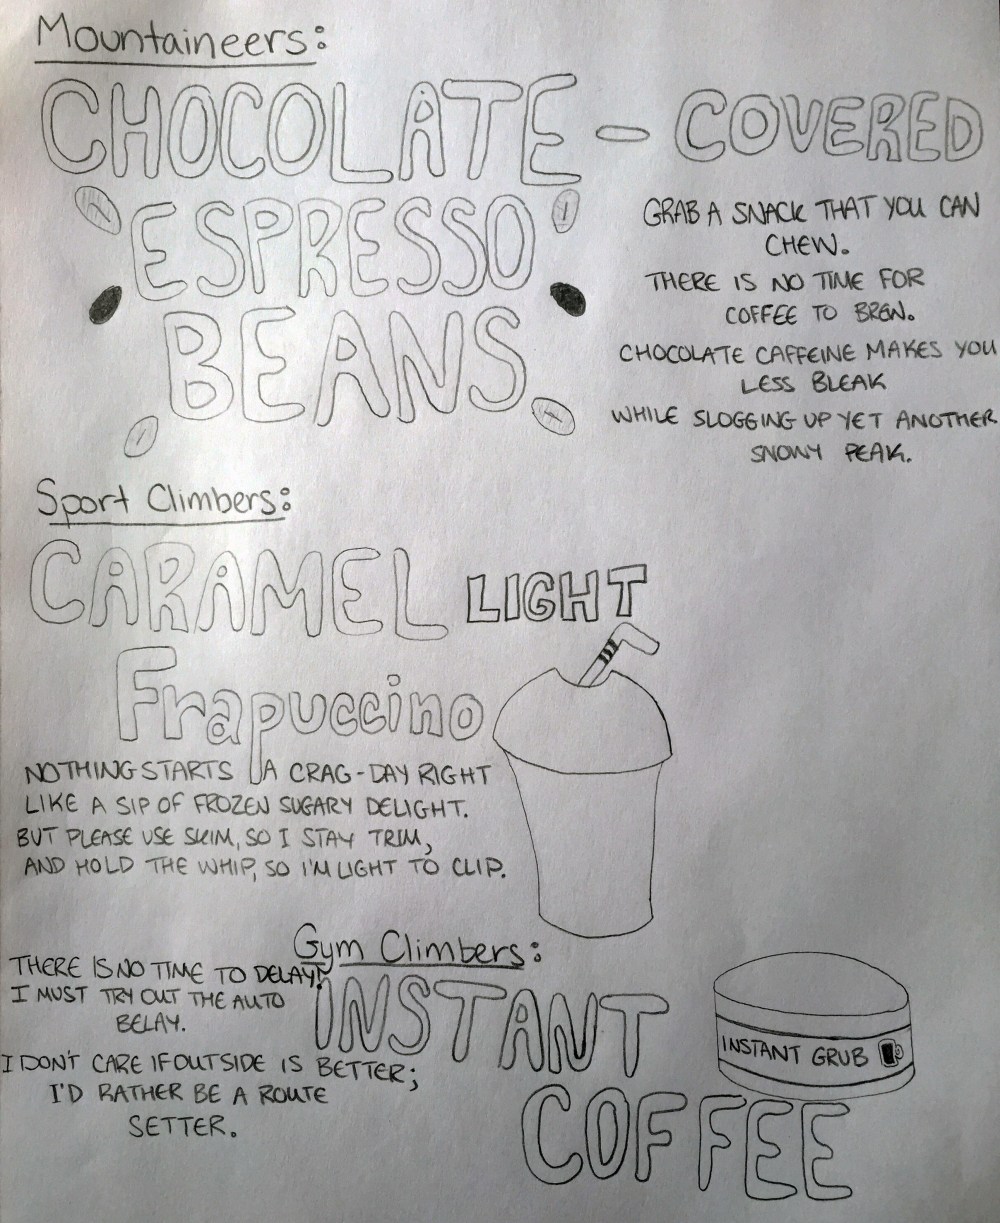 Mountaineers:
CHOCOLATE - COVERED
ESPRESSO
BEANS
GRAB A SNACK THAT YOU CAN
CHEW.
THERE IS NO TIME FOR
COFFEE TO BREW.
CHOCOLATE CAFFEINE MAKES YOU
LESS BLEAK
WHILE SLOGGING UP YET ANOTHER
SNOWY PEAK.
Sport Climbers:
CARAMEL LIGHT
Frapuccino
NOTHING STARTS A CRAG-DAY RIGHT
LIKE A SIP OF FROZEN SUGARY DELIGHT.
BUT PLEASE USE SKIM, SO I STAY TRIM,
AND HOLD THE WHIP, SO I'M LIGHT TO CLIP.
Gym Climbers:
INSTANT
COFFEE
THERE IS NO TIME TO DELAY!
I MUST TRY OUT THE AUTO
BELAY.
I DON'T CARE IF OUTSIDE IS BETTER;
I'D RATHER BE A ROUTE
SETTER.
INSTANT GRUB